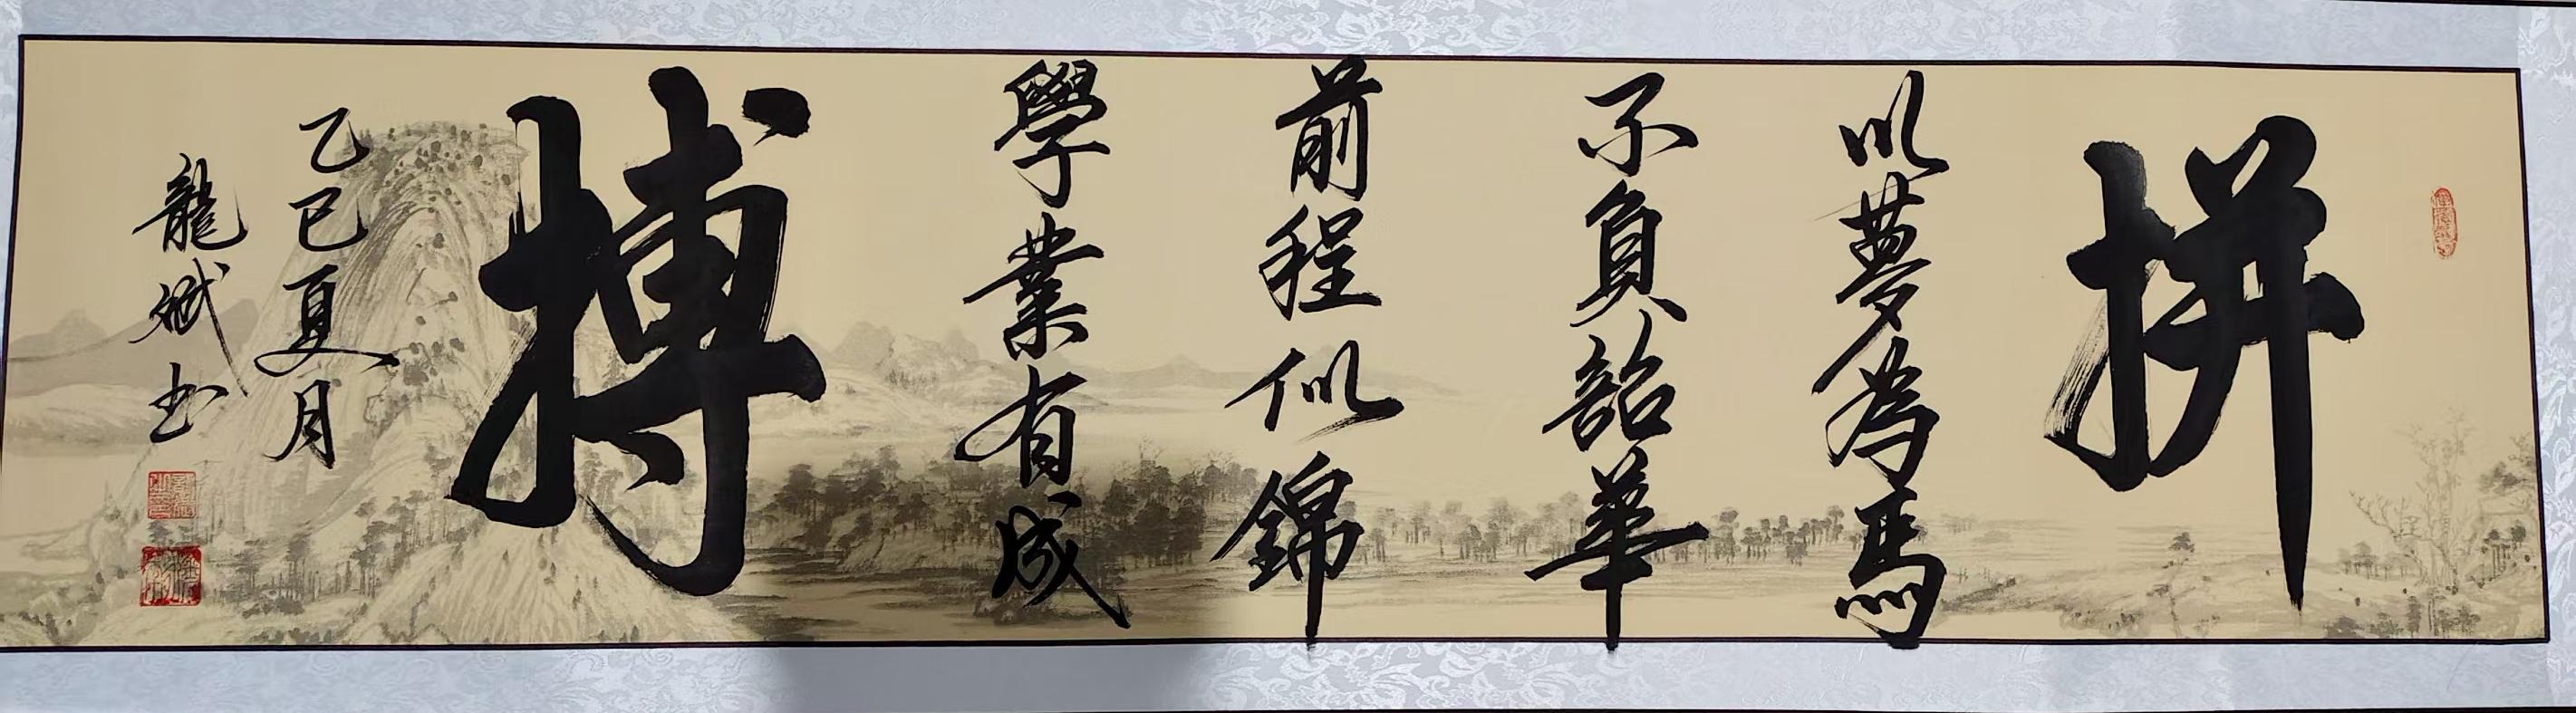 拼
以夢為馬
不負韶華
前程似錦
學業有成
搏
乙巳夏月
龍斌書